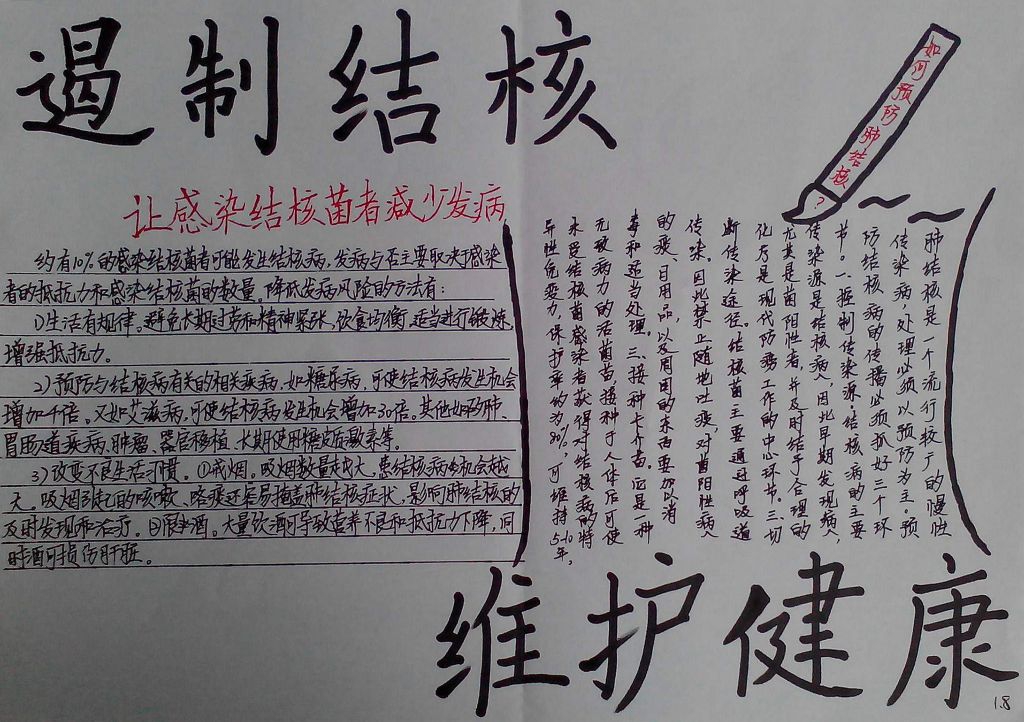 遏制结核
让感染结核菌者减少发病
约有10%的感染结核菌者可能发生结核病，发病与否主要取决于感染
者的抵抗力和感染结核菌的数量。降低发病风险的方法有：
1)生活有规律。避免长期过劳和精神紧张，饮食均衡，适当进行锻炼，
增强抵抗力。
2)预防与结核病有关的相关疾病，如糖尿病，可使结核病发生机会
增加4倍。又如艾滋病，可使结核病发生机会增加30倍。其他如矽肺、
胃肠道疾病、肿瘤、器官移植、长期使用糖皮质激素等。
3)改变不良生活习惯。①戒烟。吸烟数量越大，患结核病的机会越
大。吸烟引起的咳嗽、咯痰还容易掩盖肺结核症状，影响肺结核的
及时发现和治疗。②限制酒。大量饮酒可导致营养不良和抵抗力下降，同
时酒可损伤肝脏。
如何预防肺结核？
肺结核是一个流行较广的慢性
传染病，处理必须以预防为主。预
防结核病的传播必须抓好三个环
节。一、控制传染源。结核病的主要
传染源是结核病人，因此早期发现病人，
尤其是菌阳性者，并及时给予合理的
化疗是现代防痨工作的中心环节。二、切
断传染途径。结核菌主要通过呼吸道
传染。因此禁止随地吐痰，对菌阳性病人
的痰、日用品，以及周围的东西要加以消
毒和适当处理。三、接种卡介苗。它是一种
无致病力的活菌苗，接种于人体后可使
未受结核菌感染者获得对结核病的特
异性免疫力，保护率约为80%，可维持5-10年。
维护健康
1.8